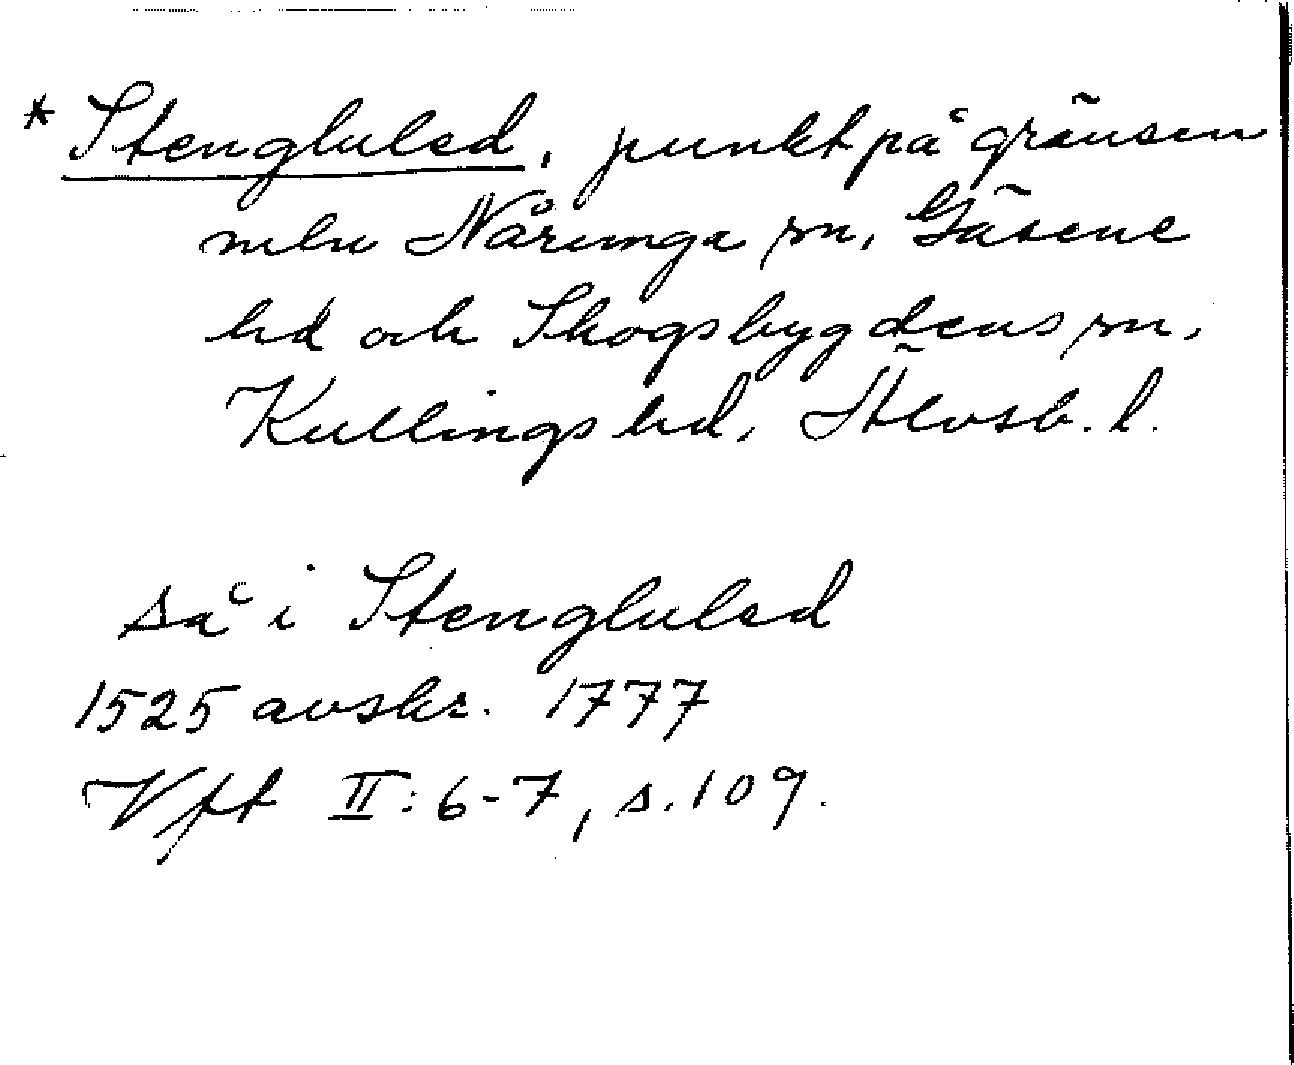 * Stenglulsd, punkt på gränsen
mln Nårunga sn, Gäsene
hd och Skogsbygdens sn,
Kullings hd, Älvsb. l.
så i Stenglulsd
1525 avskr. 1777
Vft II: 6-7, s. 109.